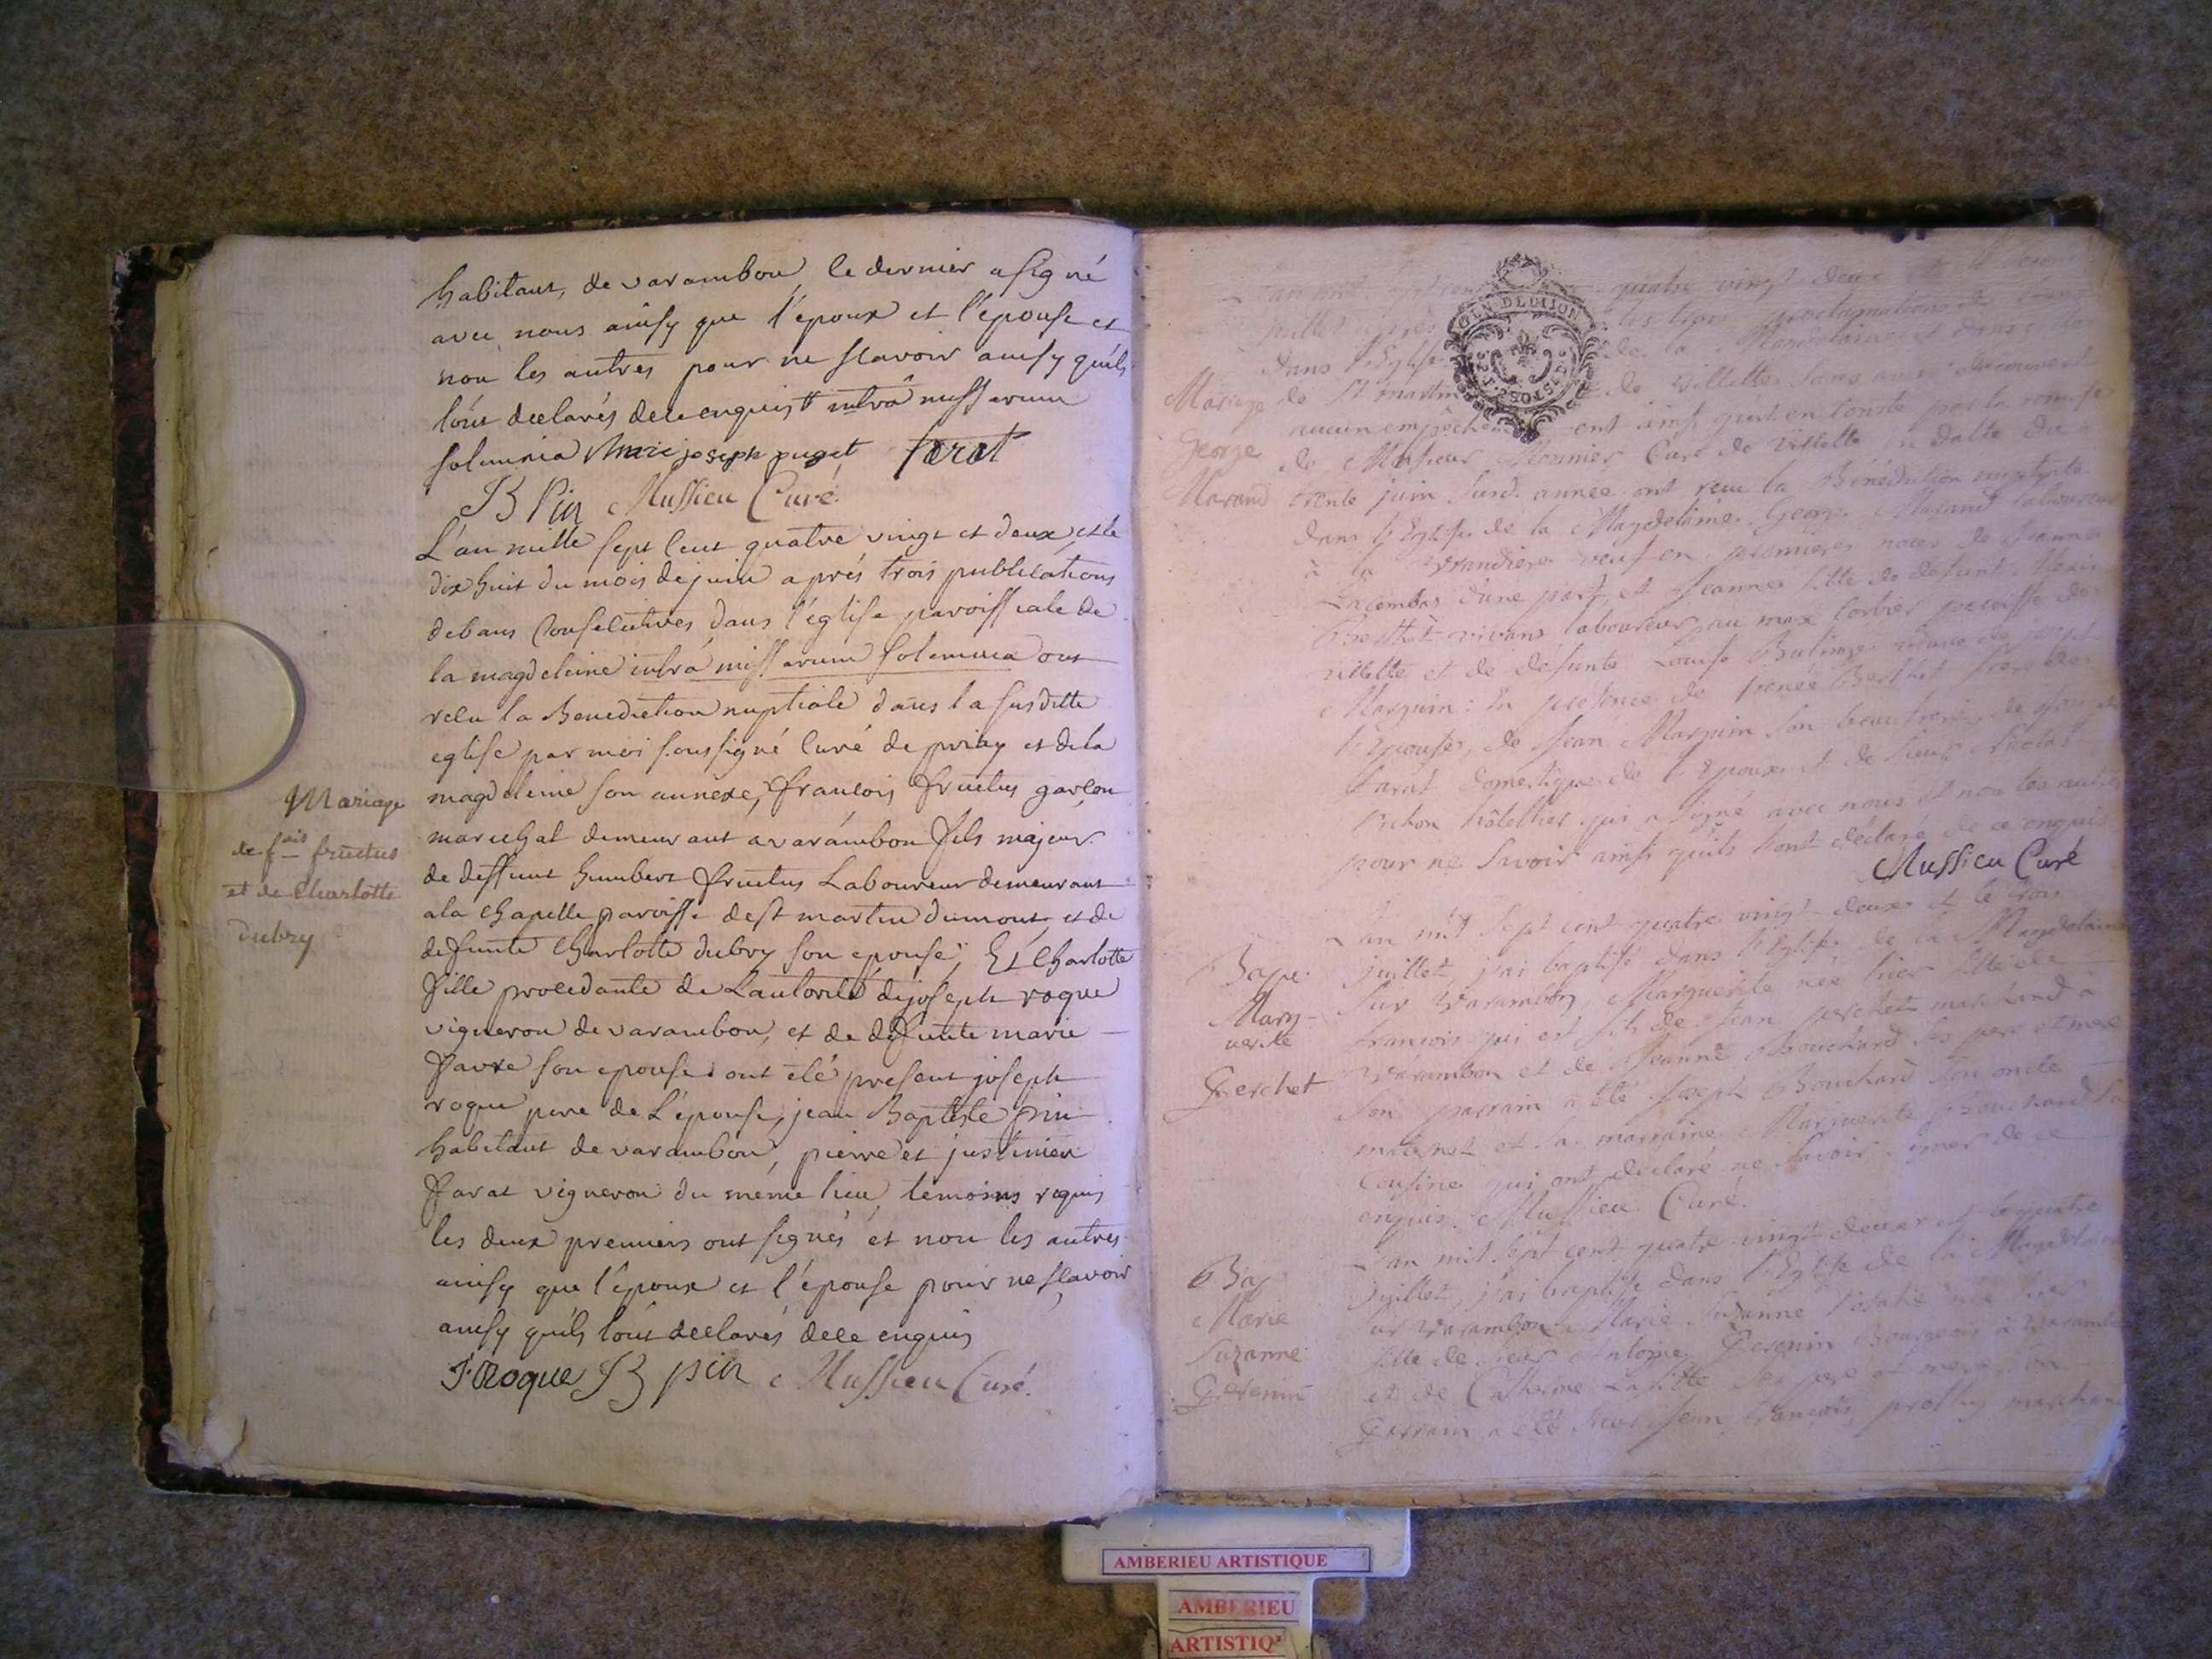 habitant, de varambon, le dernier a signé
avec nous ainsy que l'epoux et l'epouse et
non les autres pour ne scavoir ainsy quils
l'ont declarés de ce enquis intrà missarum
solemnia marie joseph puget farat
JB Pin Mussieu Curé.
L'an mille sept cent quatre vingt et deux et le
dix huit du mois de juin aprés trois publications
de bans Consecutives dans l'église paroissiale de
la magdeleine intrà missarum solemnia ont
recu la Benediction nuptiale dans la susditte
eglise par moi soussigné curé de priay et de la
magdeleine son annexe, francois fructus garcon
Mariage
de f.ois fructus
et de Charlotte
dubry
marechal demeurant a varambon fils majeur
de deffunt humbert fructus Laboureur demeurant
a la chapelle paroisse de st martin dumont, et de
defunte Charlotte dubry son epouse; Et Charlotte
fille procedante de L'autorité de joseph roque
vigneron de varambon, et de defunte marie
favre son epouse ont été present joseph
roque pere de L'épouse, jean Baptiste pin
habitant de varambon, pierre et justinien
farat vigneron du meme lieu, temoins requis
les deux premiers ont signés et non les autres
ainsy que l'époux et l'épouse pour ne scavoir
ainsy quils l'ont declarés de ce enquis
J Roque JB pin Mussieu Curé.
GEN. DE LYON
quatre vingt deux
juillet après les trois proclamations
dans l'Eglise de la Magdelaine et dans
de St martin de Villette sans avoir découvert
Mariage
George
Marand
aucun empêchement ainsi qu'il en conste par la remise
de Monsieur Monnier Curé de Villette en datte du
trente juin susd. année ont reçu la Bénédiction nuptiale
dans l'Eglise de la Magdelaine George Marand laboureur
à la veuf en premières noces de Jeanne
Lacombas d'une part, et Jeanne fille de défunt
Berthet vivant laboureur au mas Corbier paroisse de
villette et de défunte Louise
Marguin: En présence de Berthet frere de
l'Epouse, de Jean Marguin son beaufrere, de
farat domestique de l'Epoux et de sieur Nicolas
hôtellier qui a signé avec nous et non les autres
pour ne savoir ainsi qu'ils l'ont déclaré de ce enquis
Mussieu Curé
L'an mil sept cent quatre vingt deux et le trois
Bap.
Marg-
uerite
Perchet
juillet j'ai baptisé dans l'Eglise de la Magdelaine
sur Varambon, Marguerite née hier fille de
francois qui est fils de Jean perchet marchand a
Varambon et de Jeanne Bouchard ses pere et mere
son parrain a été Joseph Bouchard son oncle
maternel et sa marraine Marguerite Bouchard sa
cousine qui ont déclaré ne savoir signer de ce
enquis. Mussieu Curé.
L'an mil sept cent quatre vingt deux et le quatre
Bap
Marie
Suzanne
juillet, j'ai baptisé dans l'Eglise de la Magdelaine
sur Varambon Marie Suzanne née hier
fille de sieur Antoine Bourgeois à Varambon
et de Catherine Lafitte ses pere et mere son
parrain a été sieur Jean francois marchand
AMBERIEU ARTISTIQUE
AMBERIEU
ARTISTIQ